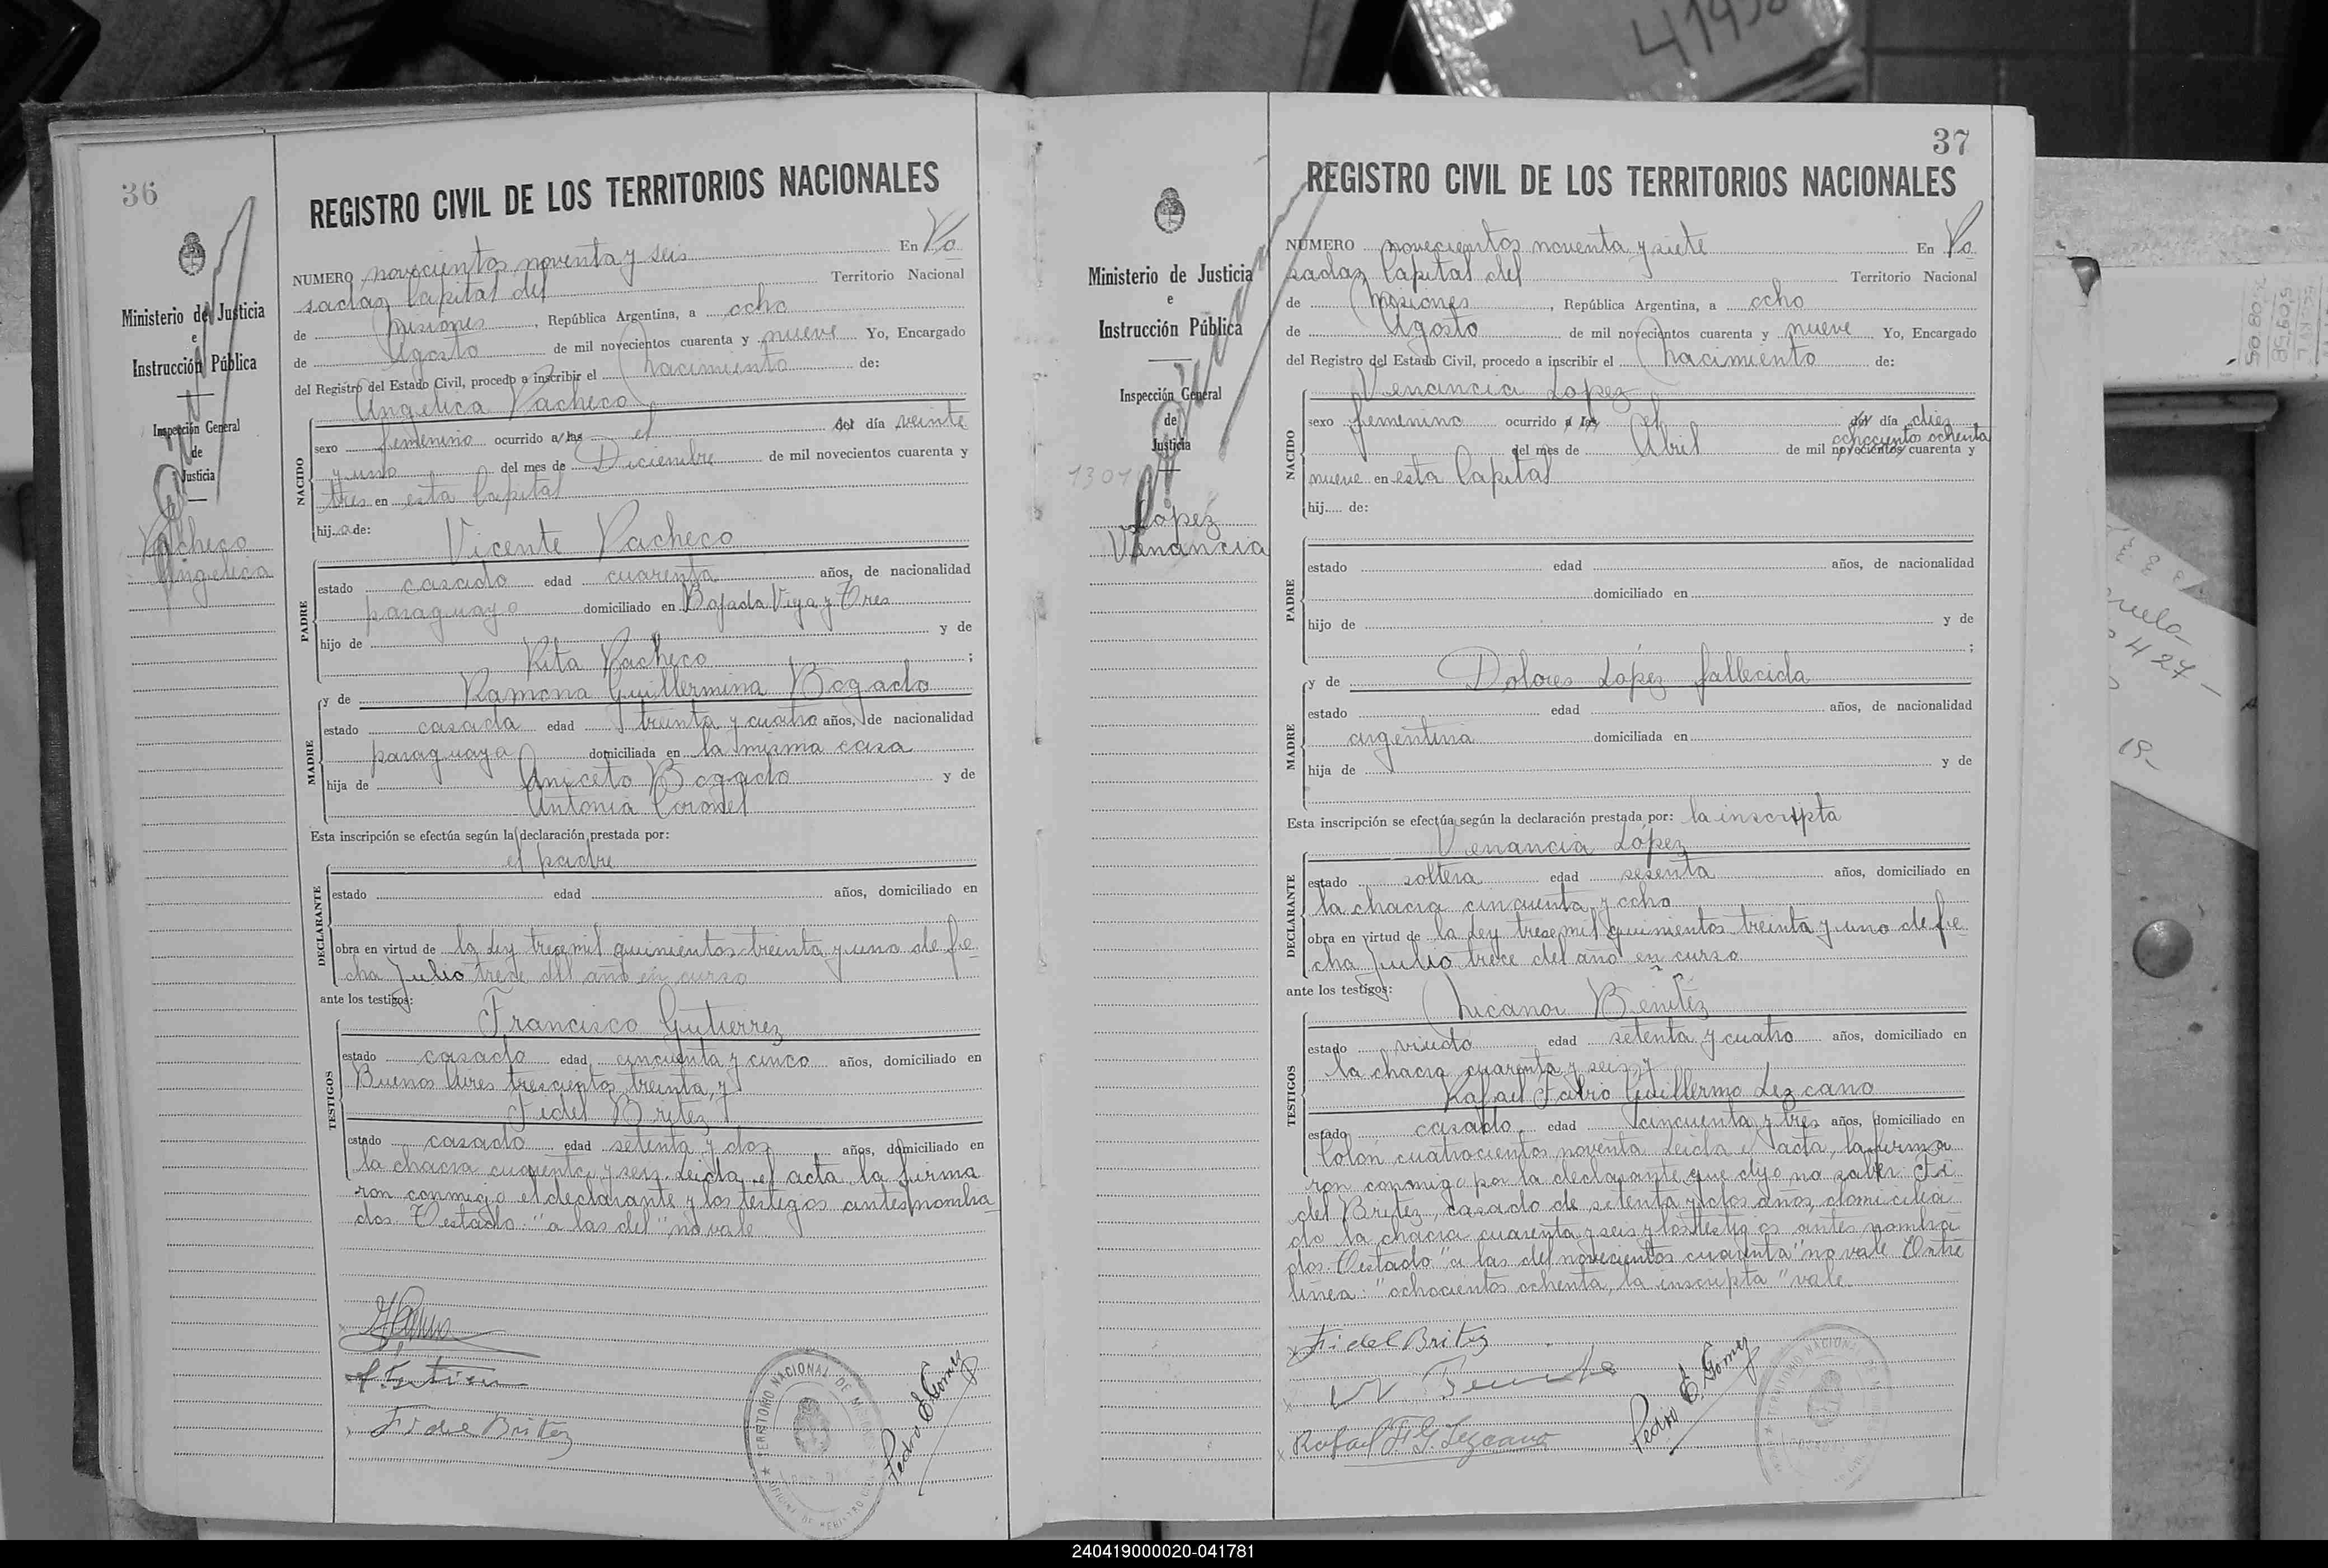 41498
36
Ministerio de Justicia
e
Instrucción Pública
Inspección General
de
Justicia
Pacheco
Angelica
REGISTRO CIVIL DE LOS TERRITORIOS NACIONALES
NUMERO novecientos noventa y seis En Po
sadas Capital del Territorio Nacional
de Misiones, República Argentina, a ocho
de Agosto de mil novecientos cuarenta y nueve Yo, Encargado
del Registro del Estado Civil, procedo a inscribir el Nacimiento de:
Angelica Pacheco
NACIDO
sexo femenino ocurrido a las el del día veinte
y uno del mes de Diciembre de mil novecientos cuarenta y
tres en esta Capital
hija de:
Vicente Pacheco
PADRE
estado casado edad cuarenta años, de nacionalidad
paraguayo domiciliado en Bajada Vieja y Tres
hijo de y de
Rita Pacheco ;
y de Ramona Guillermina Bogado
MADRE
estado casada edad treinta y cuatro años, de nacionalidad
paraguaya domiciliada en la misma casa
hija de Aniceto Bogado y de
Antonia Coronel
Esta inscripción se efectúa según la declaración prestada por:
el padre
DECLARANTE
estado edad años, domiciliado en
obra en virtud de la Ley trece mil quinientos treinta y uno de fe
cha Julio trece del año en curso
ante los testigos:
Francisco Gutierrez
TESTIGOS
estado casado edad cincuenta y cinco años, domiciliado en
Buenos Aires trescientos treinta, y
Fidel Britez
estado casado edad setenta y dos años, domiciliado en
la chacra cuarenta y seis. Leida el acta la firma
ron conmigo el declarante y los testigos antes nombra
dos. Testado: "a las del" no vale
Fidel Britez
Pedro E. Gomez
TERRITORIO NACIONAL DE MISIONES
37
Ministerio de Justicia
e
Instrucción Pública
Inspección General
de
Justicia
López
Venancia
REGISTRO CIVIL DE LOS TERRITORIOS NACIONALES
NUMERO novecientos noventa y siete En Po
sadas Capital del Territorio Nacional
de Misiones, República Argentina, a ocho
de Agosto de mil novecientos cuarenta y nueve Yo, Encargado
del Registro del Estado Civil, procedo a inscribir el Nacimiento de:
Venancia Lopez
NACIDO
sexo femenino ocurrido a las el del día diez
ochocientos ochenta
del mes de Abril de mil novecientos cuarenta y
nueve en esta Capital
hij... de:
PADRE
estado edad años, de nacionalidad
domiciliado en
hijo de y de
;
y de Dolores López fallecida
MADRE
estado edad años, de nacionalidad
argentina domiciliada en
hija de y de
Esta inscripción se efectúa según la declaración prestada por: la inscripta
Venancia López
DECLARANTE
estado soltera edad sesenta años, domiciliado en
la chacra cincuenta y ocho
obra en virtud de la Ley trece mil quinientos treinta y uno de fe
cha Julio trece del año en curso
ante los testigos:
Nicanor Benítez
TESTIGOS
estado viudo edad setenta y cuatro años, domiciliado en
la chacra cuarenta y seis, y
Rafael Fabio Guillermo Lezcano
estado casado, edad cincuenta y tres años, domiciliado en
Colón cuatrocientos noventa Leida el acta, la firma
ron conmigo por la declarante que dijo no saber: Fi
del Britez, casado de setenta y dos años, domicilia
do la chacra cuarenta y seis y los testigos antes nombra
dos. Testado "a las del novecientos cuarenta" no vale. Entre
línea: "ochocientos ochenta, la inscripta" vale.
Fidel Britez
Rafael F. G. Lezcano
Pedro E. Gomez
TERRITORIO NACIONAL
427
19-
240419000020-041781